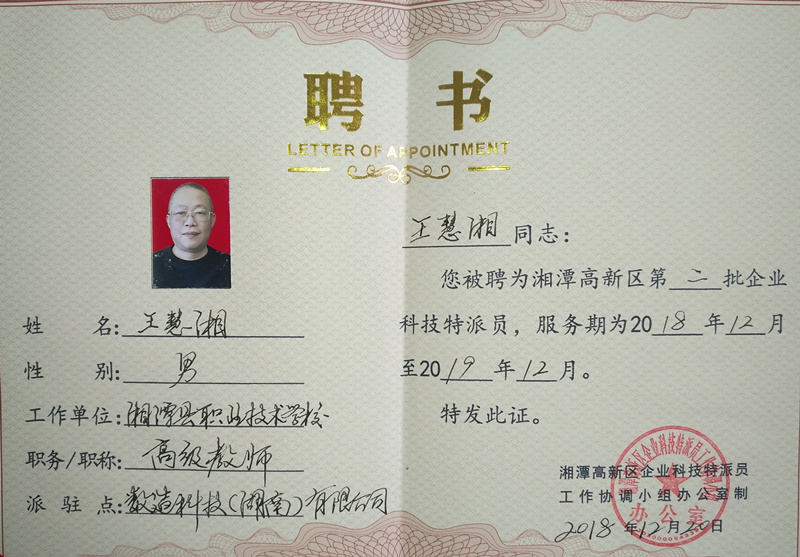 聘 书
LETTER OF APPOINTMENT
姓 名：王慧湘
性 别：男
工作单位：湘潭县职业技术学校
职务/职称：高级教师
派 驻 点：数造科技（湖南）有限公司
王慧湘同志：
您被聘为湘潭高新区第二批企业
科技特派员，服务期为2018年12月
至2019年12月。
特发此证。
湘潭高新区企业科技特派员
工作协调小组办公室制
2018年12月20日
办公室